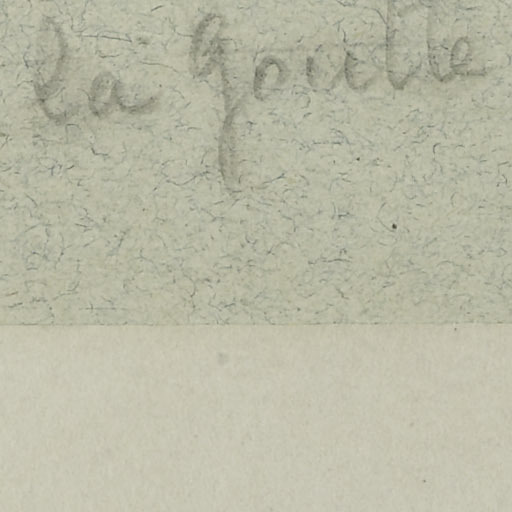 la Goutte